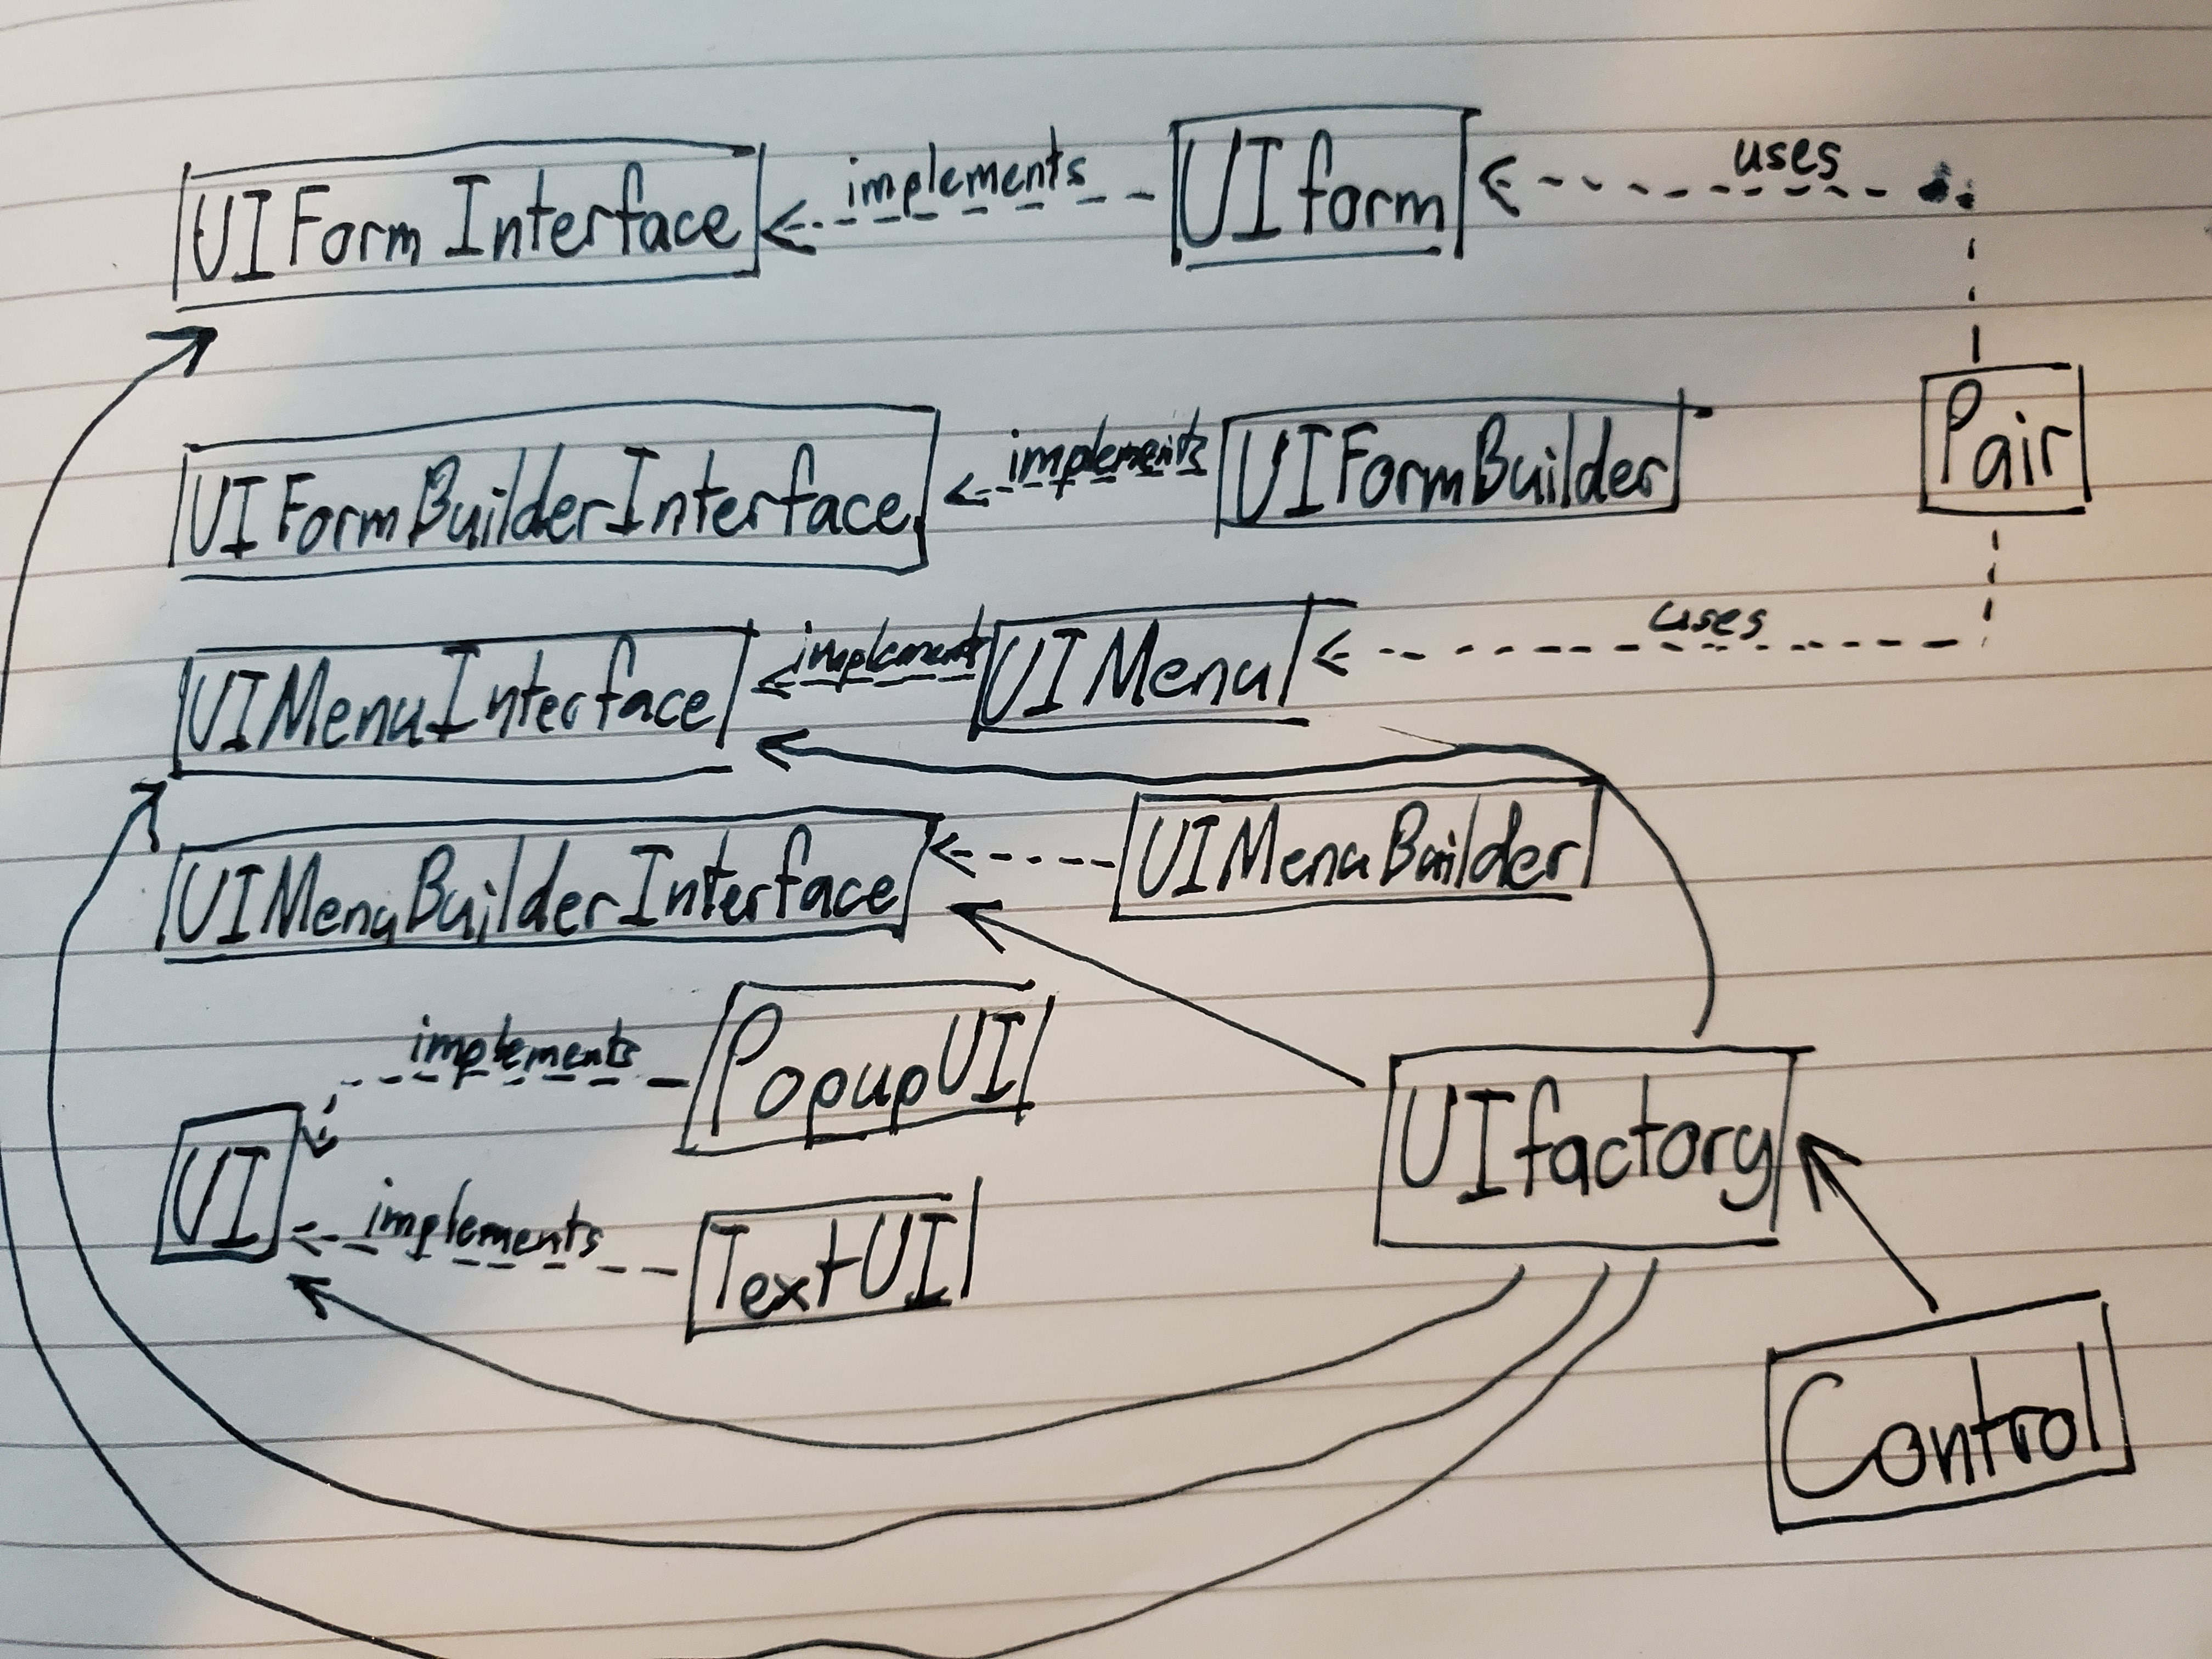 UIFormInterface
implements
UIform
uses
UIFormBuilderInterface
implements
UIFormBuilder
Pair
UIMenuInterface
implements
UIMenu
uses
UIMenuBuilderInterface
UIMenuBuilder
UI
implements
PopupUI
implements
TextUI
UIfactory
Control